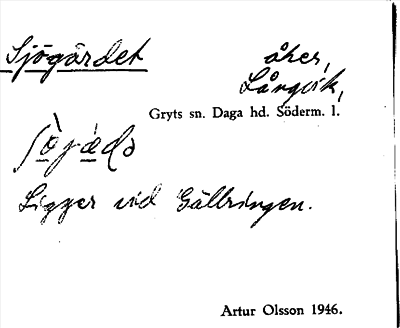 Sjögärdet åker,
Långvik,
Gryts sn. Daga hd. Söderm. l.
Ligger vid Gällringen.
Artur Olsson 1946.